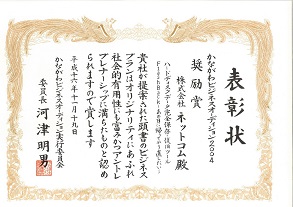 表彰状
かながわビジネスオーディション2004
奨励賞
株式会社 ネットコム殿
貴社が提案された頭書のビジネス
プランはオリジナリティにあふれ
社会的有用性にも富みかつアントレ
プレナーシップに満ちたものと認め
られますので賞します
平成十六年十一月十九日
かながわビジネスオーディション実行委員会
委員長 河津明男